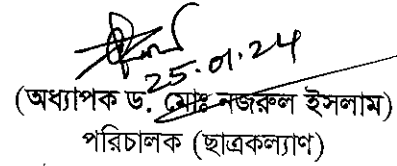 25.01.24
(অধ্যাপক ড. মোঃ নজরুল ইসলাম)
পরিচালক (ছাত্রকল্যাণ)